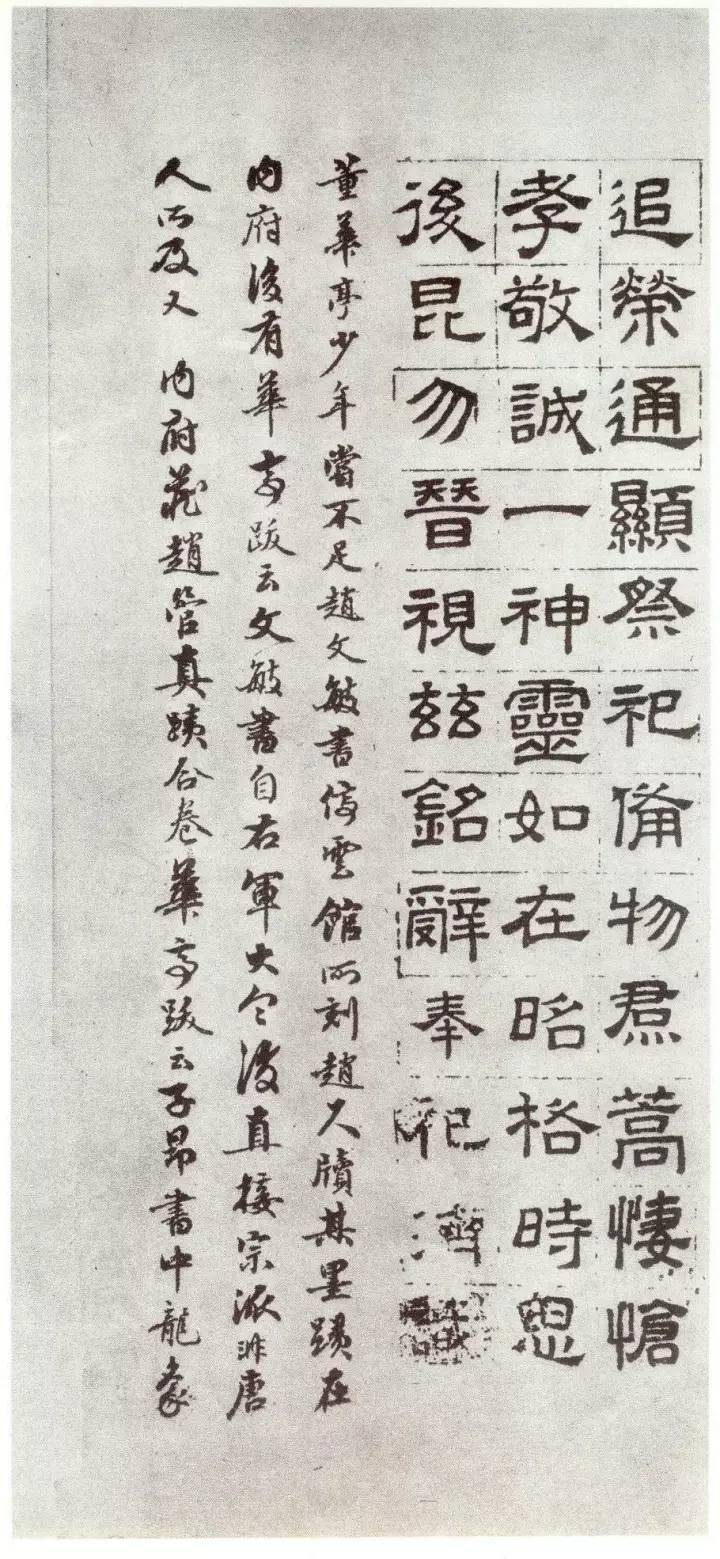 追榮通顯祭祀備物焄蒿悽愴
孝敬誠一神靈如在昭格時思
後昆勿朁視茲銘辭奉祀
董華亭少年嘗不足趙文敏書停雲館所刻趙尺牘其墨蹟在
內府後有華亭跋云文敏書自右軍大令後直接宗派非唐
人所及又 內府藏趙管真蹟合卷華亭跋云子昂書中龍象